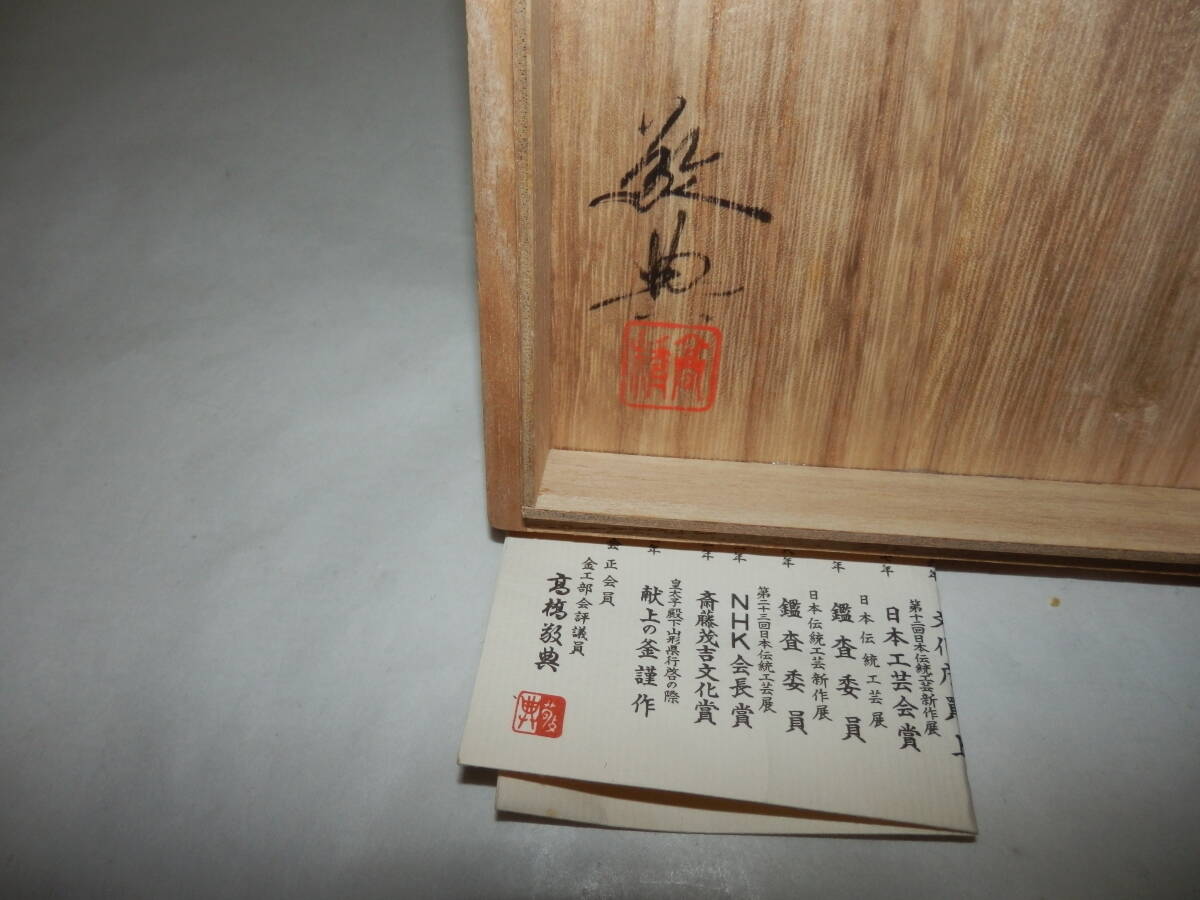 敬典
高橋
文化庁買上
第十二回日本伝統工芸新作展
日本工芸会賞
年
日本伝統工芸展
鑑査委員
年
日本伝統工芸新作展
鑑査委員
年
第二十三回日本伝統工芸展
NHK会長賞
年
斎藤茂吉文化賞
年
皇太子殿下山形県行啓の際
献上の釜謹作
年
会正会員
金工部会評議員
高橋敬典
敬典